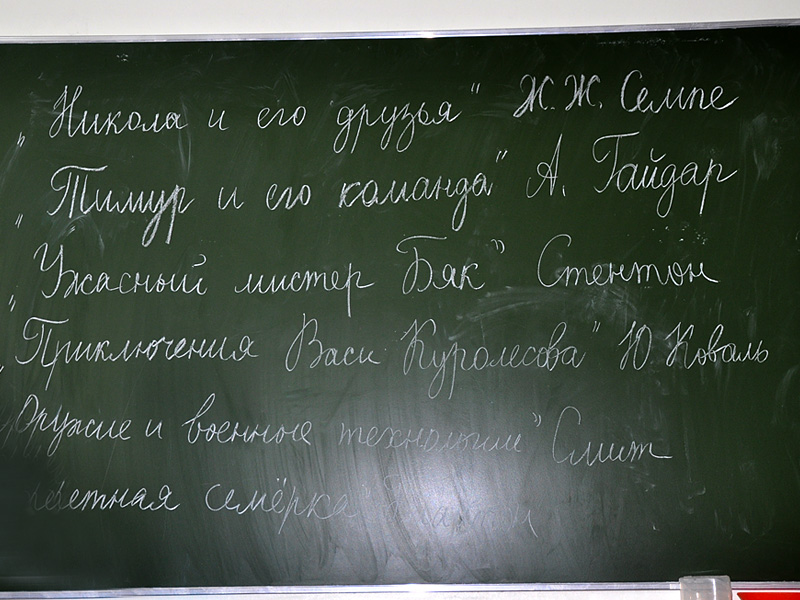 „Никола и его друзья" Ж.Ж. Семпе
„Тимур и его команда" А. Гайдар
„Ужасный мистер Бяк" Стентон
„Приключения Васи Куролесова" Ю. Коваль
„Оружие и военные технологии" Смит
семёрка"